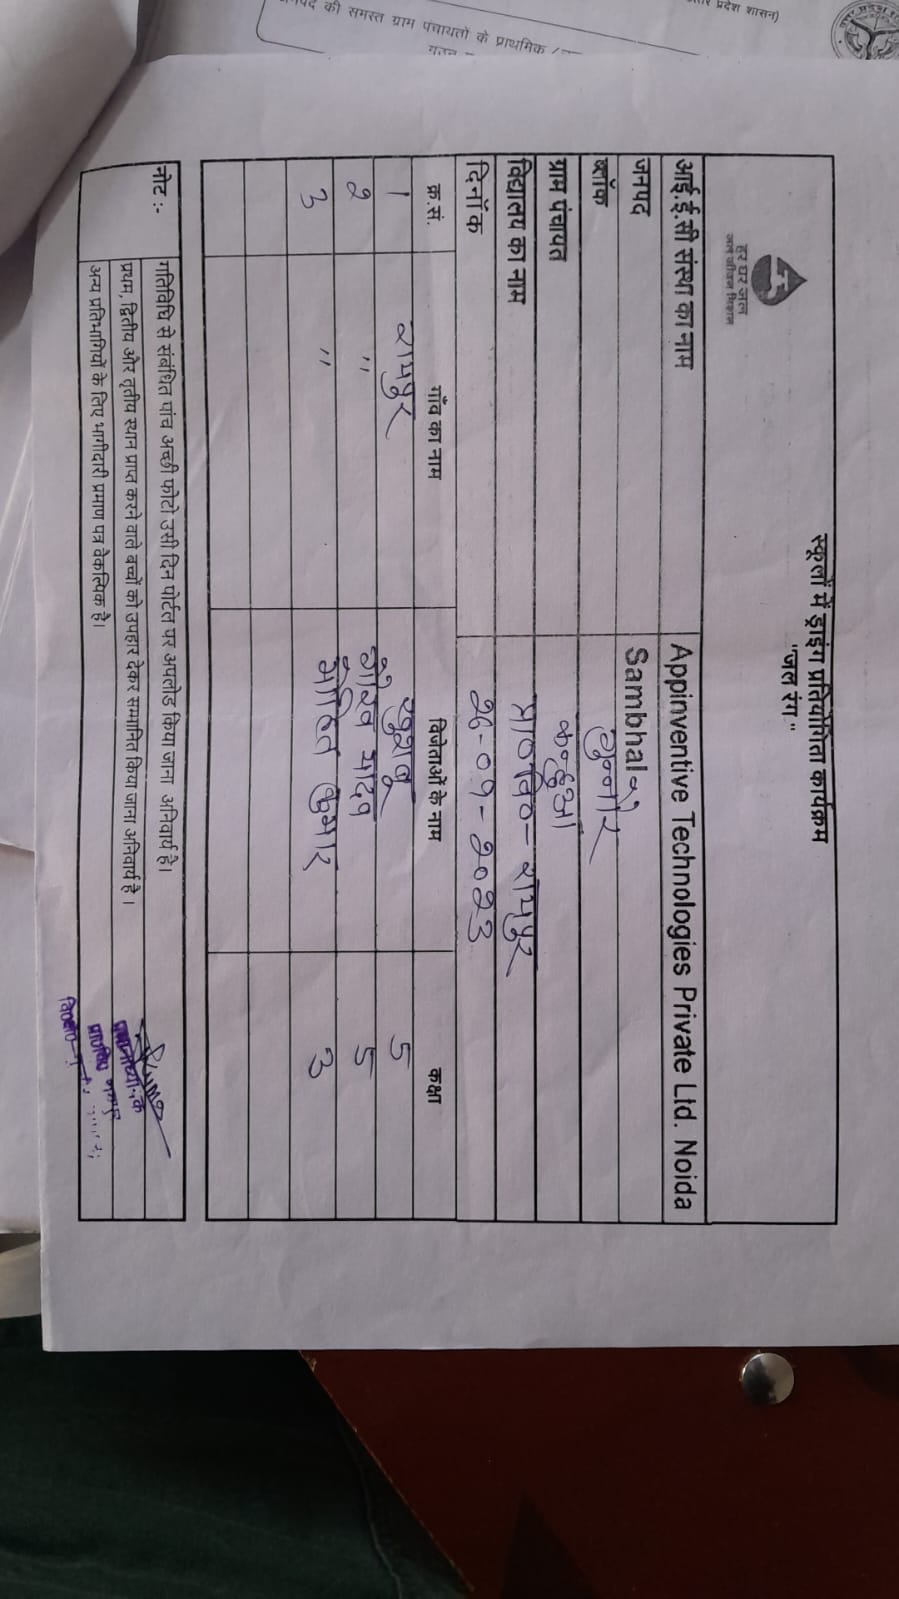 प्रदेश शासन)
की समस्त ग्राम पंचायतो के प्राथमिक
हर घर जल
जल जीवन मिशन
स्कूलों में ड्राइंग प्रतियोगिता कार्यक्रम
"जल रंग"
आई.ई.सी संस्था का नाम Appinventive Technologies Private Ltd. Noida
जनपद Sambhal
ब्लॉक जुनार
ग्राम पंचायत कन्हुआ
विद्यालय का नाम प्रा०वि०- रामपुर
दिनाँक 26-09-2023
क्र.सं. गाँव का नाम विजेताओं के नाम कक्षा
1 रामपुर खुशबू 5
2 " गौरव यादव 5
3 " मोहित कुमार 3
नोट :- गतिविधि से संबंधित पांच अच्छी फोटो उसी दिन पोर्टल पर अपलोड किया जाना अनिवार्य है।
प्रथम, द्वितीय और तृतीय स्थान प्राप्त करने वाले बच्चों को उपहार देकर सम्मानित किया जाना अनिवार्य है।
अन्य प्रतिभागियों के लिए भागीदारी प्रमाण पत्र वैकल्पिक है।